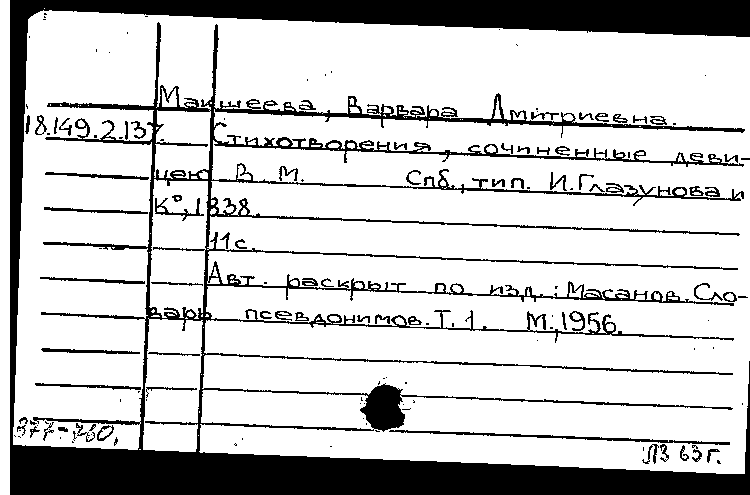 Макшеева, Варвара Дмитриевна.
18.149.2.137. Стихотворения, сочиненные деви-
цею В. М. Спб., тип. И. Глазунова и
К°, 1838.
11 с.
Авт. раскрыт по изд.: Масанов. Сло-
варь псевдонимов. Т. 1. М., 1956.
377-760.
ЛЗ 63 г.